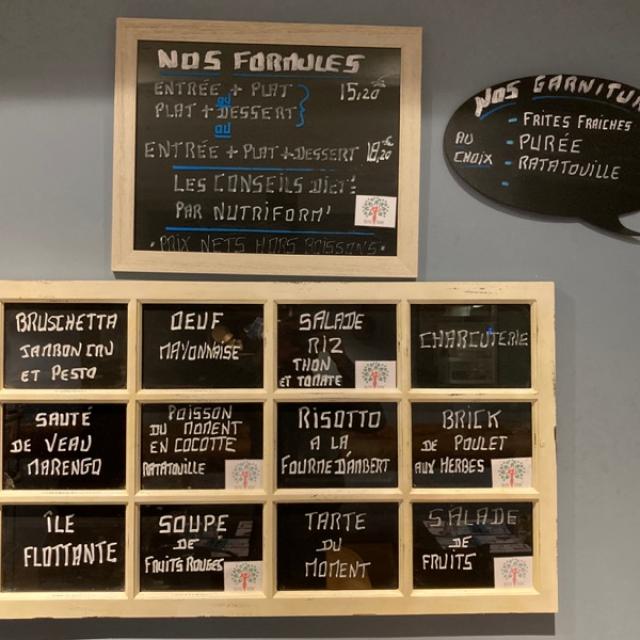 NOS FORMULES
ENTRÉE + PLAT 15,20€
ou
PLAT + DESSERT
ou
ENTRÉE + PLAT + DESSERT 18,20€
LES CONSEILS DIET'
PAR NUTRIFORM'
• PRIX NETS HORS BOISSONS •
NOS GARNITU
AU
CHOIX
- FRITES FRAÎCHES
- PURÉE
- RATATOUILLE
-
BRUSCHETTA
JAMBON CRU
ET PESTO
OEUF
MAYONNAISE
SALADE
RIZ
THON
ET TOMATE
CHARCUTERIE
SAUTÉ
DE VEAU
MARENGO
POISSON
DU MOMENT
EN COCOTTE
RATATOUILLE
RISOTTO
A LA
FOURME D'AMBERT
BRICK
DE POULET
AUX HERBES
ÎLE
FLOTTANTE
SOUPE
DE
FRUITS ROUGES
TARTE
DU
MOMENT
SALADE
DE
FRUITS